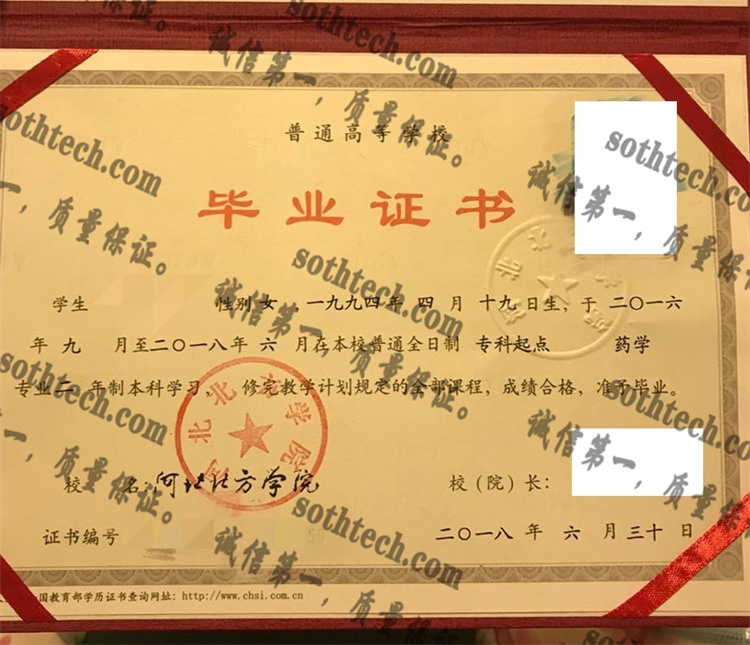 普通高等学校
毕业证书
学生 性别 女 一九九四年 四 月 十九 日生，于 二〇一六
年 九 月至二〇一八年 六 月在本校普通全日制 专科起点 药学
专业 二 年制本科学习， 修完教学计划规定的全部课程，成绩合格，准予毕业。
校 名：河北北方学院 校（院）长：
证书编号 二〇一八 年 六 月 三十 日
国教育部学历证书查询网址：http://www.chsi.com.cn
河北北方学院
sothtech.com
诚信第一，质量保证。